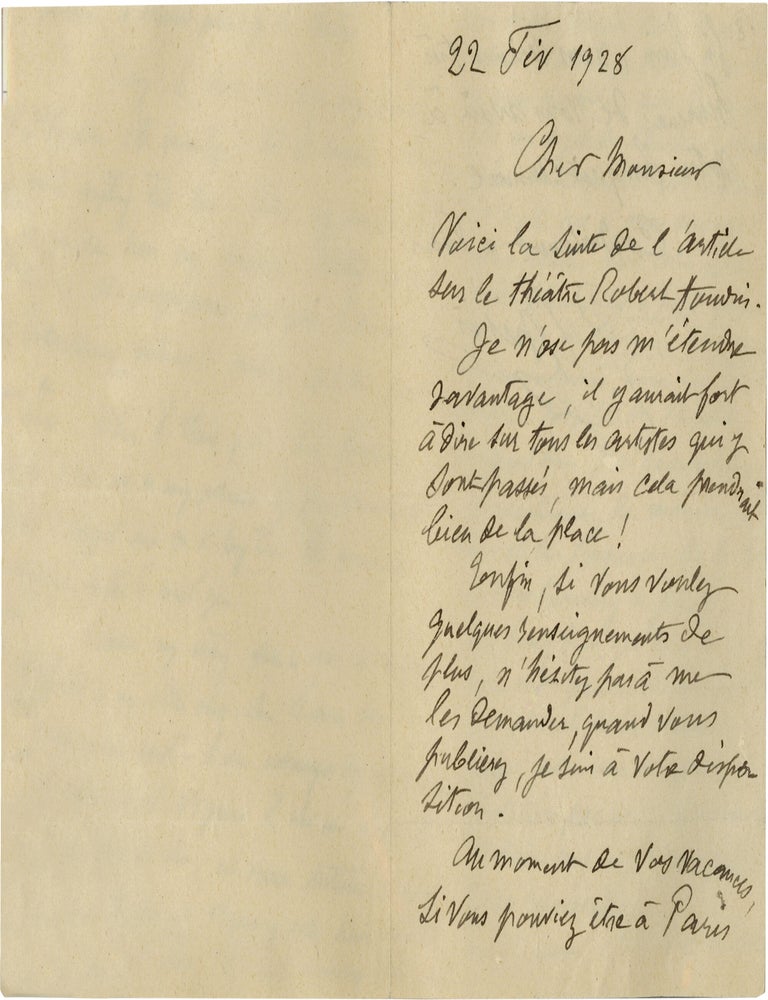 22 Fév 1928
Cher Monsieur
Voici la suite de l'article
sur le théâtre Robert Houdin.
Je n'ose pas m'étendre
davantage, il y aurait fort
à dire sur tous les artistes qui y
sont passés, mais cela prendrait
bien de la place !
Enfin, si vous voulez
quelques renseignements de
plus, n'hésitez pas à me
les demander, quand vous
publierez, je suis à votre dispo-
sition.
Au moment de vos vacances,
si vous pouviez être à Paris